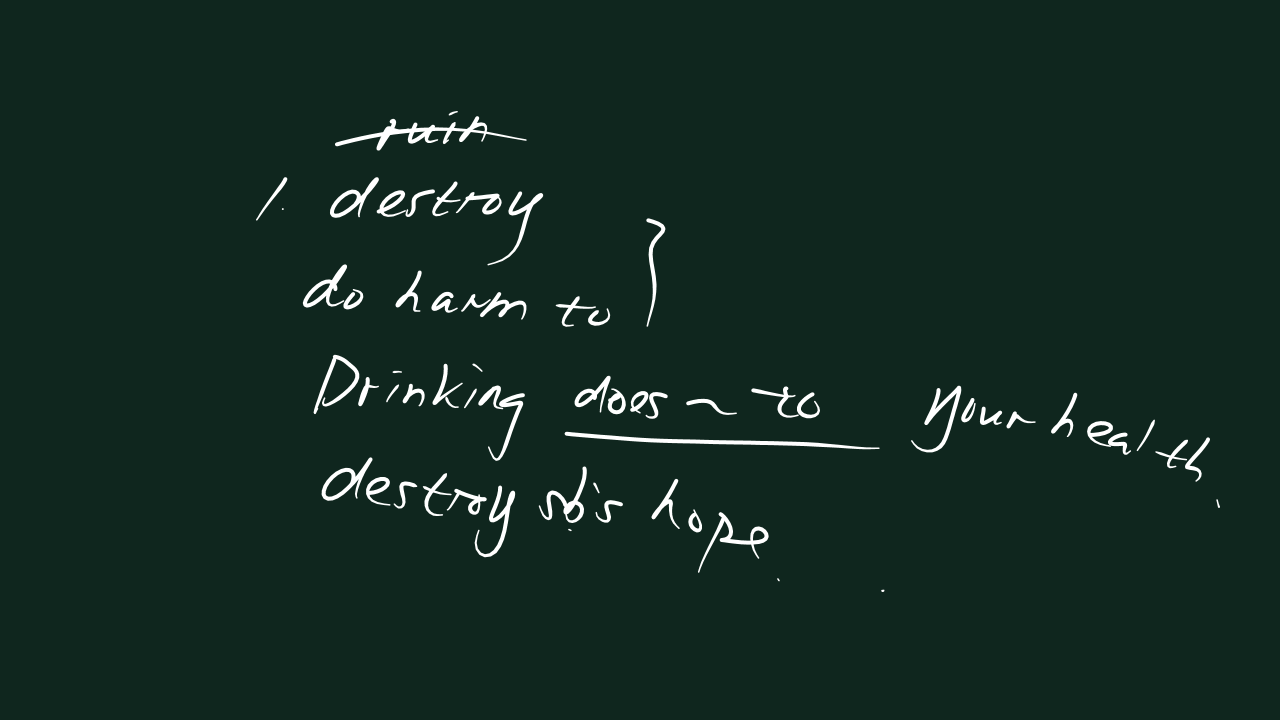 ruin
1. destroy
do harm to }
Drinking does ~ to your health.
destroy sb's hope.